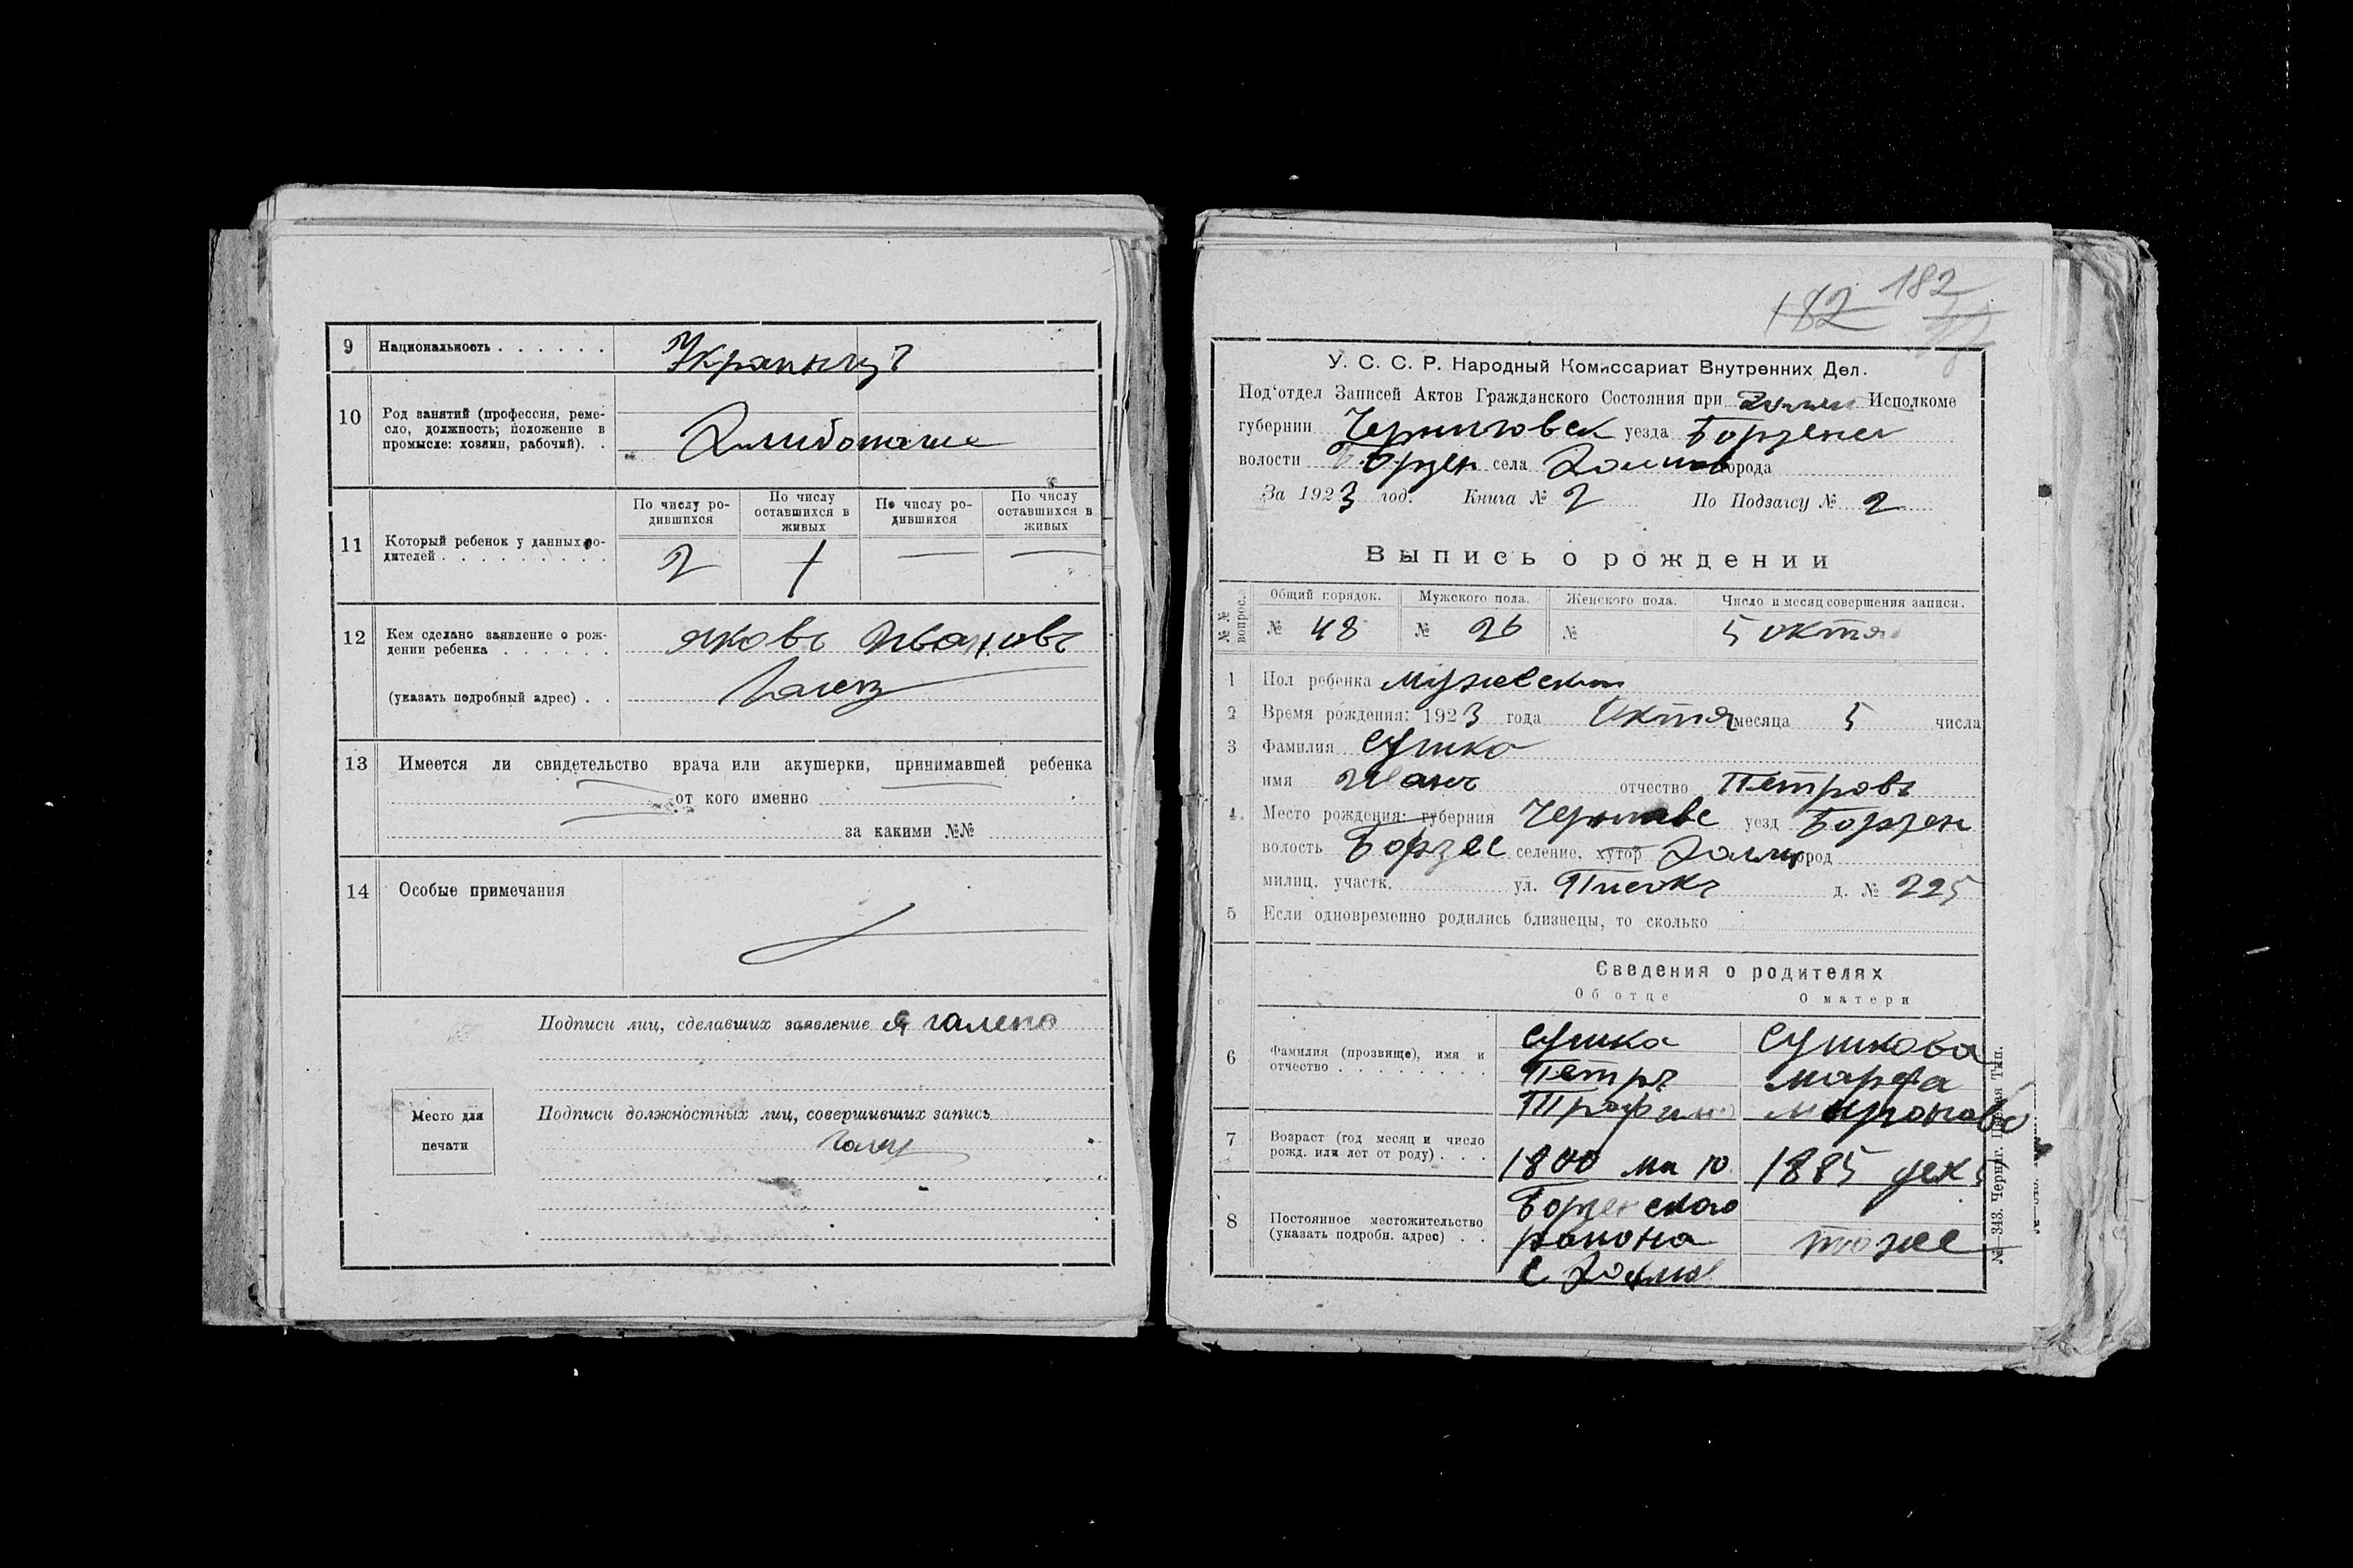 9 Национальность . . . . . . Украинцъ
10 Род занятий (профессия, реме-
сло, должность; положение в
промысле: хозяин, рабочий). .
Хлиборобие
По числу ро-
дившихся
По числу
оставшихся в
живых
По числу ро-
дившихся
По числу
оставшихся в
живых
11 Который ребенок у данных ро-
дителей . . . . . . . . .
2
12 Кем сделано заявление о рож-
дении ребенка . . . . . .
Яковъ Ивановъ
(указать подробный адрес) . .
13 Имеется ли свидетельство врача или акушерки, принимавшей ребенка
от кого именно
за какими №№
14 Особые примечания
Подписи лиц, сделавших заявление Я
Подписи должностных лиц, совершивших запись
Место для
печати
182 182
У. С. С. Р. Народный Комиссариат Внутренних Дел.
Под'отдел Записей Актов Гражданского Состояния при Исполкоме
губернии Черниговск уезда Борзенс
волости Борзен села города
За 1923 год. Книга № 2 По Подзагсу № 2
Выпись о рождении
№ №
вопрос.
Общий порядок. Мужского пола. Женского пола. Число и месяц совершения записи.
№ 48 № 26 № 5 октя
1 Пол ребенка мужеской
2 Время рождения: 1923 года Октя месяца 5 числа
3 Фамилия Сушко
имя Иванъ отчество Петровъ
4 Место рождения: губерния уезд Борзен
волость селение, хутор город
милиц. участк. ул. д. № 225
5 Если одновременно родились близнецы, то сколько
Сведения о родителях
Об отце О матери
6 Фамилия (прозвище), имя и
отчество . . . . . . . .
Сушко
Петръ
Трофимо
Сушкова
Марфа
Миронова
7 Возраст (год месяц и число
рожд. или лет от роду) . . .
1800 1885 дек 5
8 Постоянное местожительство
(указать подробн. адрес) . .
Борзенского
района
с
тоже
№ 343. Черниг. Тип.